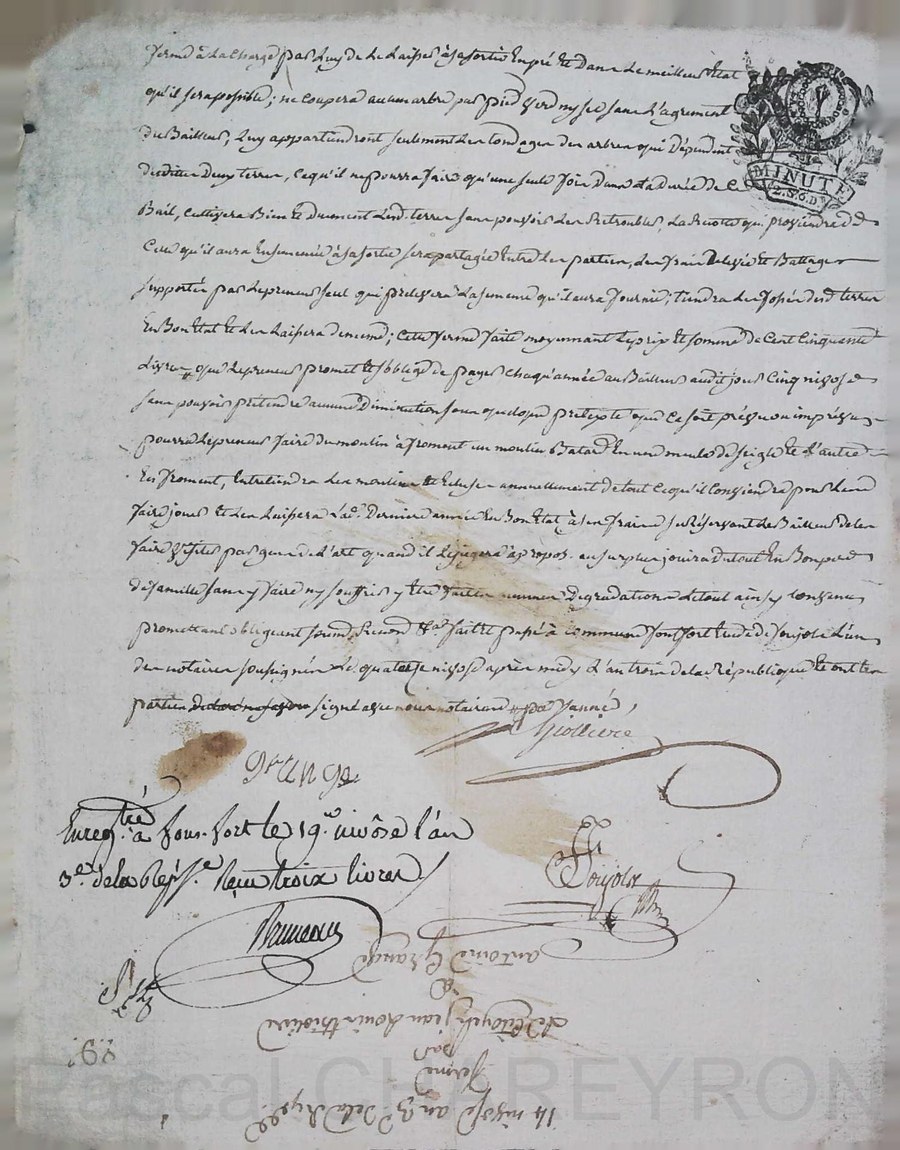 ferme à la charge par luy de le laisser à sa sortie en pré et dans le meilleur état
qu'il sera possible; ne coupera aucun arbre par pied verd ny sec sans l'agrement
du Bailleur, luy appartiendront seulement les tondages des arbres qui dépendent
desdittes deux terres, ce qu'il ne pourra faire qu'une seule fois dans la durée de ce
Bail, cultivera Bien et duement lesd. terres sans pouvoir les Retroubler, la Recolte qui proviendra de
Celle qu'il aura Ensemencée à sa sortie sera partagée Entre les parties, les frais de levée et Battage
supportés par le preneur seul qui prelevera la semence qu'il aura fournie; tiendra les fossés desd. terres
En Bon Etat et les laissera de meme; cette ferme faite moyennant le prix et somme de Cent Cinquante
Livres que le preneur promet et s'obblige de payer chaqu'année au Bailleur audit jour Cinq nivose
sans pouvoir prétendre aucune Diminution sous quelque pretexte que ce soit prévu ou imprévu
pourra le preneur faire du moulin à froment un moulin Batard En une meule de seigle et l'autre
En froment, Entretiendra les moulins et Ecluse annuellement de tout ce qu'il Conviendra pour les
faire jouer et les laissera la de. Derniere année En Bon Etat à ses fraix se Réservant le Bailleur de les
faire visiter par gens de l'art quand il le jugera à propos. au surplus jouira du tout En Bon pere
de famille sans y faire ny souffrir y être faittes aucunes Degradations le tout ainsy Convenu
promettant obligeant soumd. Renond. &a. fait et passé à commune fontfort Etude de Soujols L'un
des notaires soussignés le quatorze nivose après midy L'an trois de la République et ont les
parties signé avec nous notaires
Thiolliere
grange
Enregtré. à fons-fort le 19e. nivôse l'an
3e. de la Répe. Reçu trois livres
Soujols
Bruneau
14 nivose an 3e. de la Rep.
ferme
par
le Citoyen jean Louis thiolliere
à
antoine Grange
MINUTE
2.S.6.D
Pascal CHAREYRON